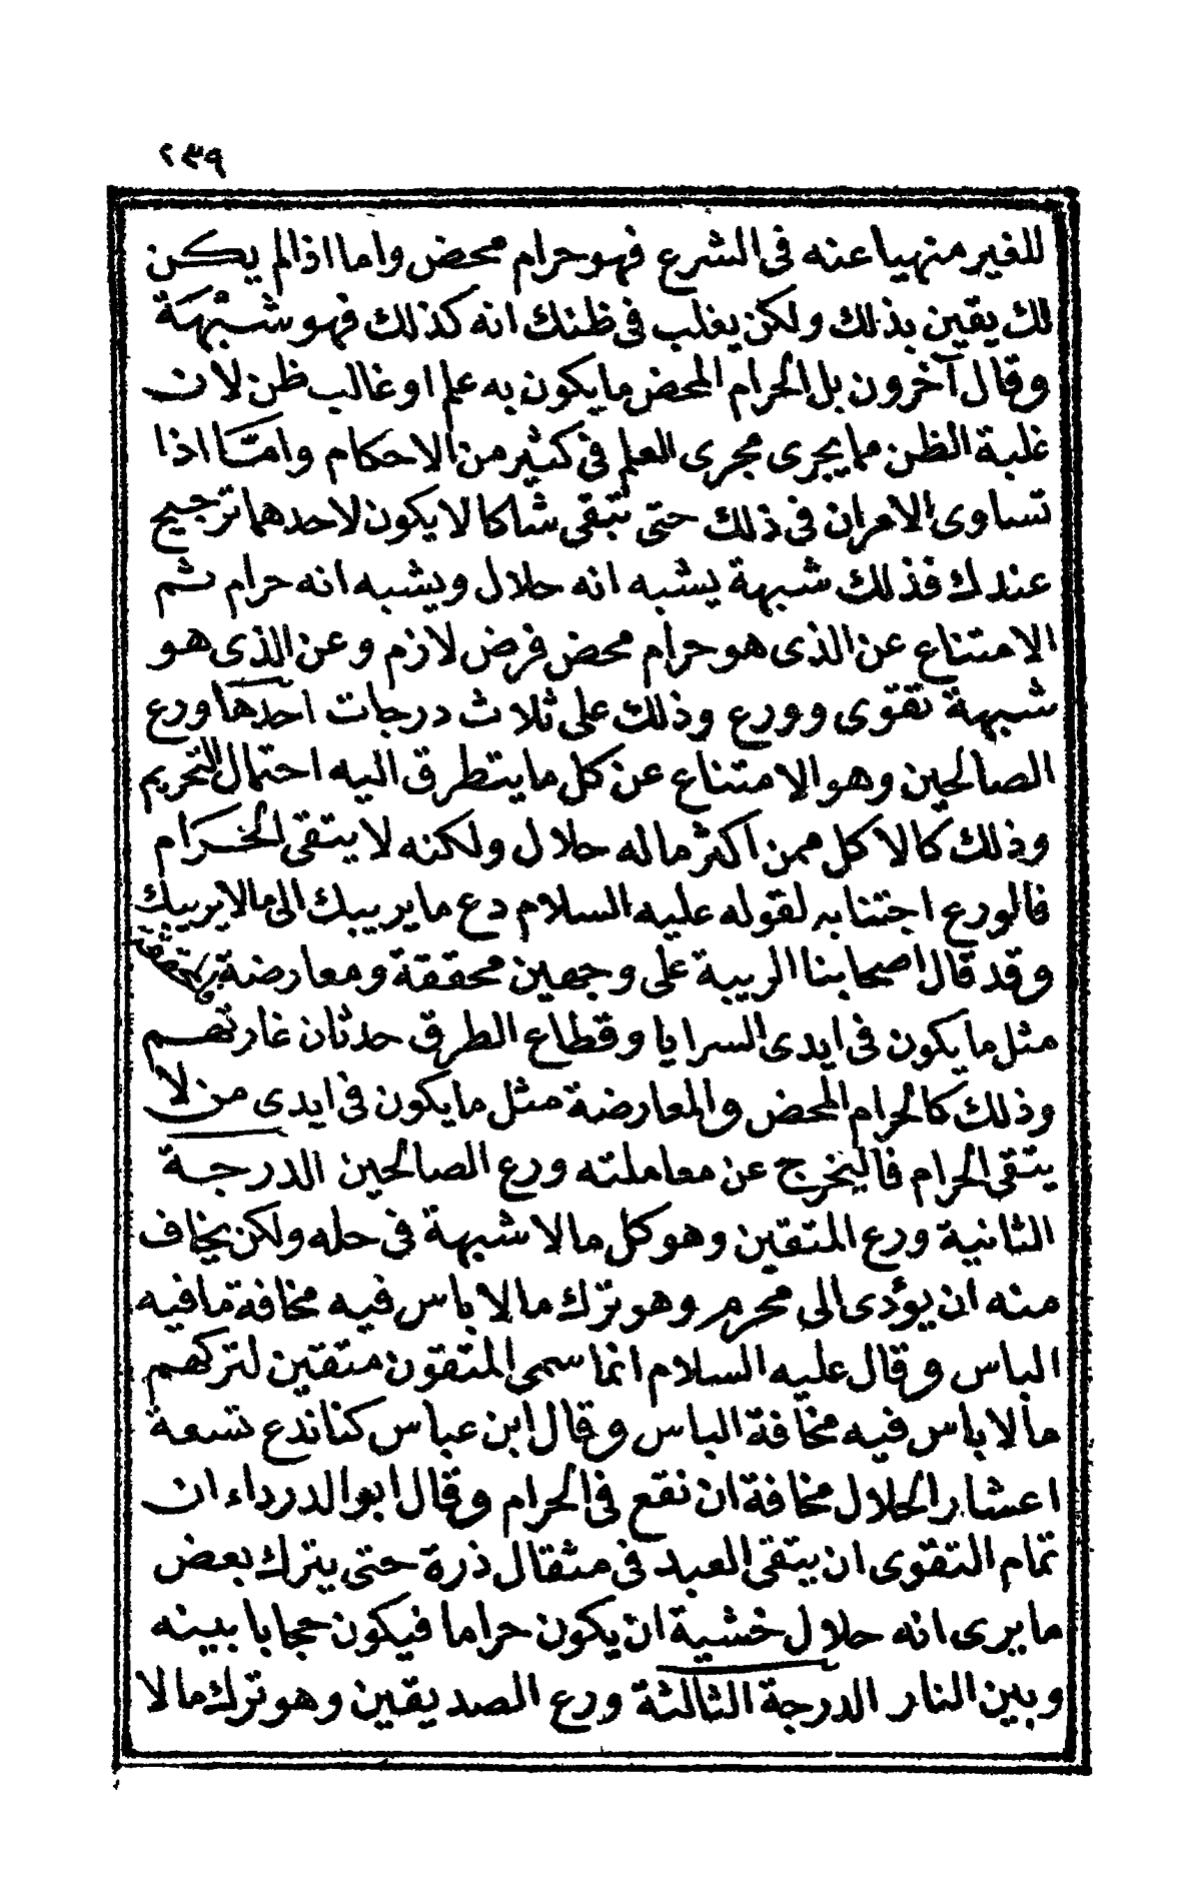 ٢٣٩
للغير منهيا عنه فى الشرع فهو حرام محض واما اذا لم يكن
لك يقين بذلك ولكن يغلب فى ظنك انه كذلك فهو شبهة
وقال آخرون بل الحرام المحض ما يكون به علم او غالب ظن لان
غلبة الظن مما يجرى مجرى العلم فى كثير من الاحكام وامّا اذا
تساوى الامران فى ذلك حتى تبقى شاكا لا يكون لاحدهما ترجيح
عندك فذلك شبهة يشبه انه حلال ويشبه انه حرام ثم
الامتناع عن الذى هو حرام محض فرض لازم وعن الذى هو
شبهة تقوى وورع وذلك على ثلاث درجات احدها ورع
الصالحين وهو الامتناع عن كل ما يتطرق اليه احتمال التحريم
وذلك كالاكل ممن اكثر ماله حلال ولكنه لا يتقى الحرام
فالورع اجتنابه لقوله عليه السلام دع ما يريبك الى ما لا يريبك
وقد قال اصحابنا الريبة على وجهين محققة ومعارضة
مثل ما يكون فى ايدى السرايا وقطاع الطرق حدثان غارتهم
وذلك كالحرام المحض والمعارضة مثل ما يكون فى ايدى من لا
يتقى الحرام فاليخرج عن معاملته ورع الصالحين الدرجة
الثانية ورع المتقين وهو كل ما لا شبهة فى حله ولكن يخاف
منه ان يؤدى الى محرم وهو ترك ما لا باس فيه مخافة ما فيه
الباس وقال عليه السلام انما سمى المتقون متقين لتركهم
ما لا باس فيه مخافة الباس وقال ابن عباس كنا ندع تسعة
اعشار الحلال مخافة ان نقع فى الحرام وقال ابو الدرداء ان
تمام التقوى ان يتقى العبد فى مثقال ذرة حتى يترك بعض
ما يرى انه حلال خشية ان يكون حراما فيكون حجابا بينه
وبين النار الدرجة الثالثة ورع الصديقين وهو ترك ما لا